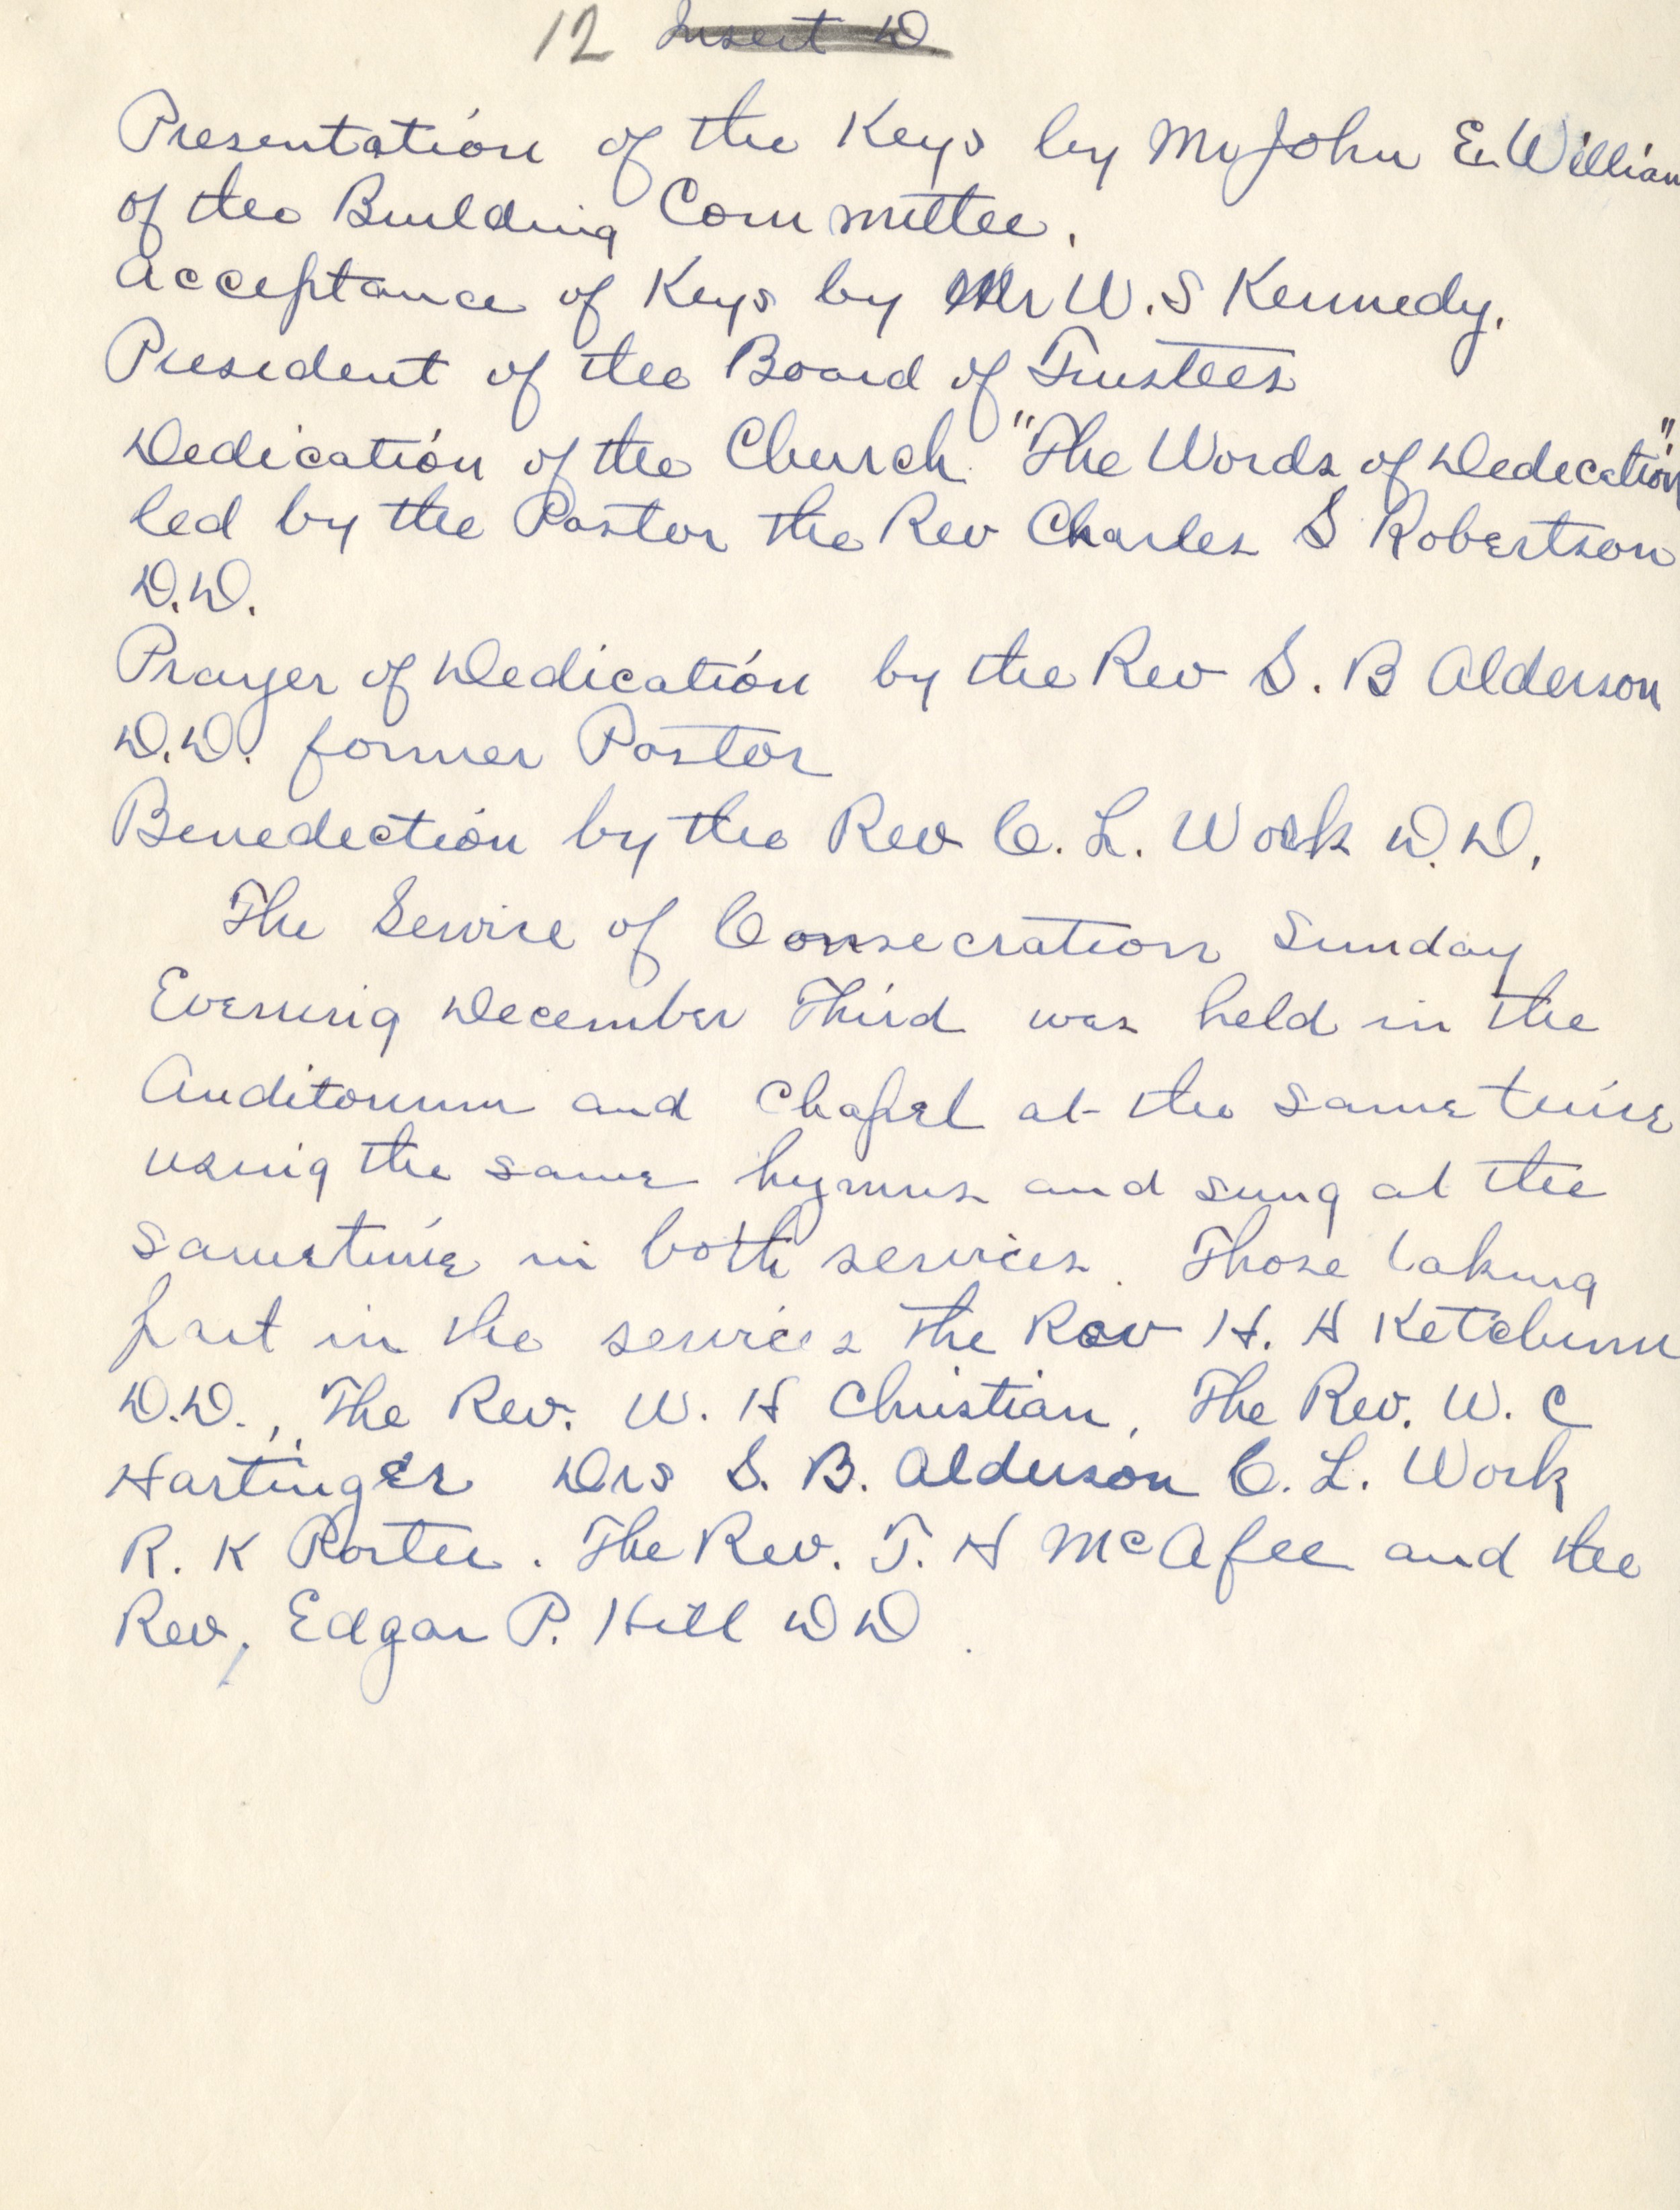 12 Insert D
Presentation of the Keys by Mr John E. William
of the Building Committee.
Acceptance of Keys by Mr W. S Kennedy.
President of the Board of Trustees
Dedication of the Church "The Words of Dedication"
led by the Pastor the Rev Charles S Robertson
D.D.
Prayer of Dedication by the Rev S. B Alderson
D.D. former Pastor
Benediction by the Rev C. L. Work D.D.
The Service of Consecration Sunday
Evening December Third was held in the
Auditorium and Chapel at the same time
using the same hymns and sung at the
sametime in both services. Those taking
part in the services the Rev H. H Ketchum
D.D., The Rev. W. H Christian, The Rev. W. C
Hartinger Drs S. B. Alderson C. L. Work
R. K Porter. The Rev. T. H McAfee and the
Rev, Edgar P. Hill D D.